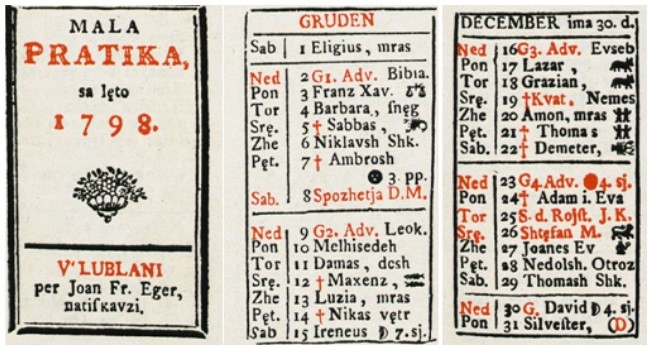 MALA
PRATIKA,
sa lęto
1798.
V' LUBLANI
per Joan Fr. Eger,
natiſkavzi.
GRUDEN
Sab 1 Eligius, mras
Ned 2 G1. Adv. Bibia.
Pon 3 Franz Xav.
Tor 4 Barbara, ſnęg
Srę. 5 † Sabbas,
Zhe 6 Niklavsh Shk.
Pęt. 7 † Ambrosh
3. pp.
Sab. 8 Spozhetja D.M.
Ned 9 G2. Adv. Leok.
Pon 10 Melhisedeh
Tor 11 Damas, desh
Srę. 12 † Maxenz,
Zhe 13 Luzia, mras
Pęt. 14 † Nikas vętr
Sab 15 Ireneus 7. sj.
DECEMBER ima 30. d.
Ned 16 G3. Adv. Evseb
Pon 17 Lazar,
Tor 18 Grazian,
Srę. 19 † Kvat. Nemes
Zhe 20 Amon, mras
Pęt. 21 † Thomas
Sab. 22 † Demeter,
Ned 23 G4. Adv. 4. sj.
Pon 24 † Adam i. Eva
Tor 25 S. d. Rojſt. J. K.
Srę. 26 Shtęfan M.
Zhe 27 Joanes Ev
Pęt. 28 Nedolsh. Otroz
Sab. 29 Thomash Shk.
Ned 30 G. David 4. sj.
Pon 31 Silveſter, (D)